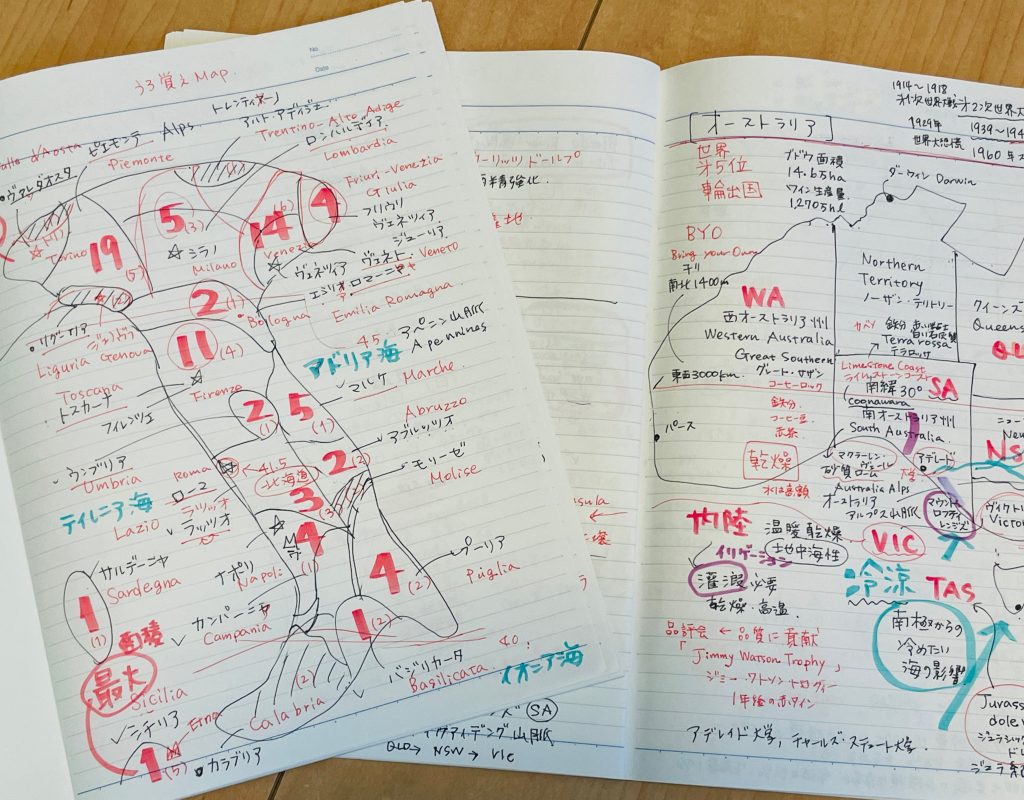 うろ覚え Map.
No.
Date
トレンティーノ
アルト・アディジェ
Trentino-Alto Adige
ロンバルディア
Lombardia
Alps
ピエモンテ
Piemonte
d'Aosta
ヴァッレダオスタ
Friuri-Venezia
Giulia
フリウリ
ヴェネツィア
ジューリア
19
(5)
Torino
5
(3)
ミラノ
Milano
14
(6)
Venezia
4
ヴェネツィア
ヴェネト
Veneto
エミリオ.ロマーニャ
Emilia Romagna
2
(1)
Bologna
45
アペニン山脈
Apennines
リグーリア
ジェノヴァ
Liguria
Genova
11
(4)
アドリア海
マルケ
Marche
Toscana
トスカーナ
フィレンツェ
Firenze
2
(1)
5
(4)
Abruzzo
アブルッツオ
ウンブリア
Umbria
Roma
ローマ
41.5
北海道
2
(2)
モリーゼ
Molise
ティレニア海
Lazio
ラッツィオ
ラッツオ
3
(3)
4
(1)
4
(2)
プーリア
Puglia
サルデーニャ
Sardegna
1
(1)
ナポリ
Napoli
カンパーニャ
Campania
1
(2)
面積
最大
Sicilia
シチリア
Etna
1
(5)
(2)
Calabria
カラブリア
バジリカータ
Basilicata
40
イオニア海
ーリッツドールプ
強化.
地
nsula
壌
SA
イヴァイディング山脈
QLD → NSW → VIC
[オーストラリア]
1914〜1918
第1次世界大戦
第2次世界大
1929年
世界大恐慌
1939〜194
1960年
世界
第5位
輸出国
ブドウ面積
14.65ha
ワイン生産量
1270万hl
ダーウィン Darwin
BYO
Bring your Own
キリ
南北1400m
WA
西オーストラリア州
Western Australia
Great Southern
グレート・サザン
コーヒーロック
東西3000km.
鉄分
コーヒー豆
赤茶
パース
乾燥
水は高額
Northern
Territory
ノーザン・テリトリー
クイーンズ
Queens
QU
カベソ
鉄分
Terra rossa
テラロッサ
Limestone Coast
ライムストーンコースト
南緯30°
SA
Coonawara
南オーストラリア州
South Australia.
アデレード
マクラーレン・ヴェール
砂質ローム
Australia Alps
オーストラリア
アルプス山脈
マウント
ロフティ
レンジズ
ニュー
New
NS
ヴィクトリ
Victor
内陸
温暖乾燥
地中海性
イリゲーション
灌漑必要
乾燥・高温
VIC
冷涼
TAS
南極からの
冷めたい
海の影響
品評会 ← 品質に貢献
「Jimmy Watson Trophy」
ジミー・ワトソン トロフィー
1年経の赤ワイン
Jurass
dole
ジュラシック
ド
ジュラ系
アデレイド大学, チャールズ・スチュート大学.